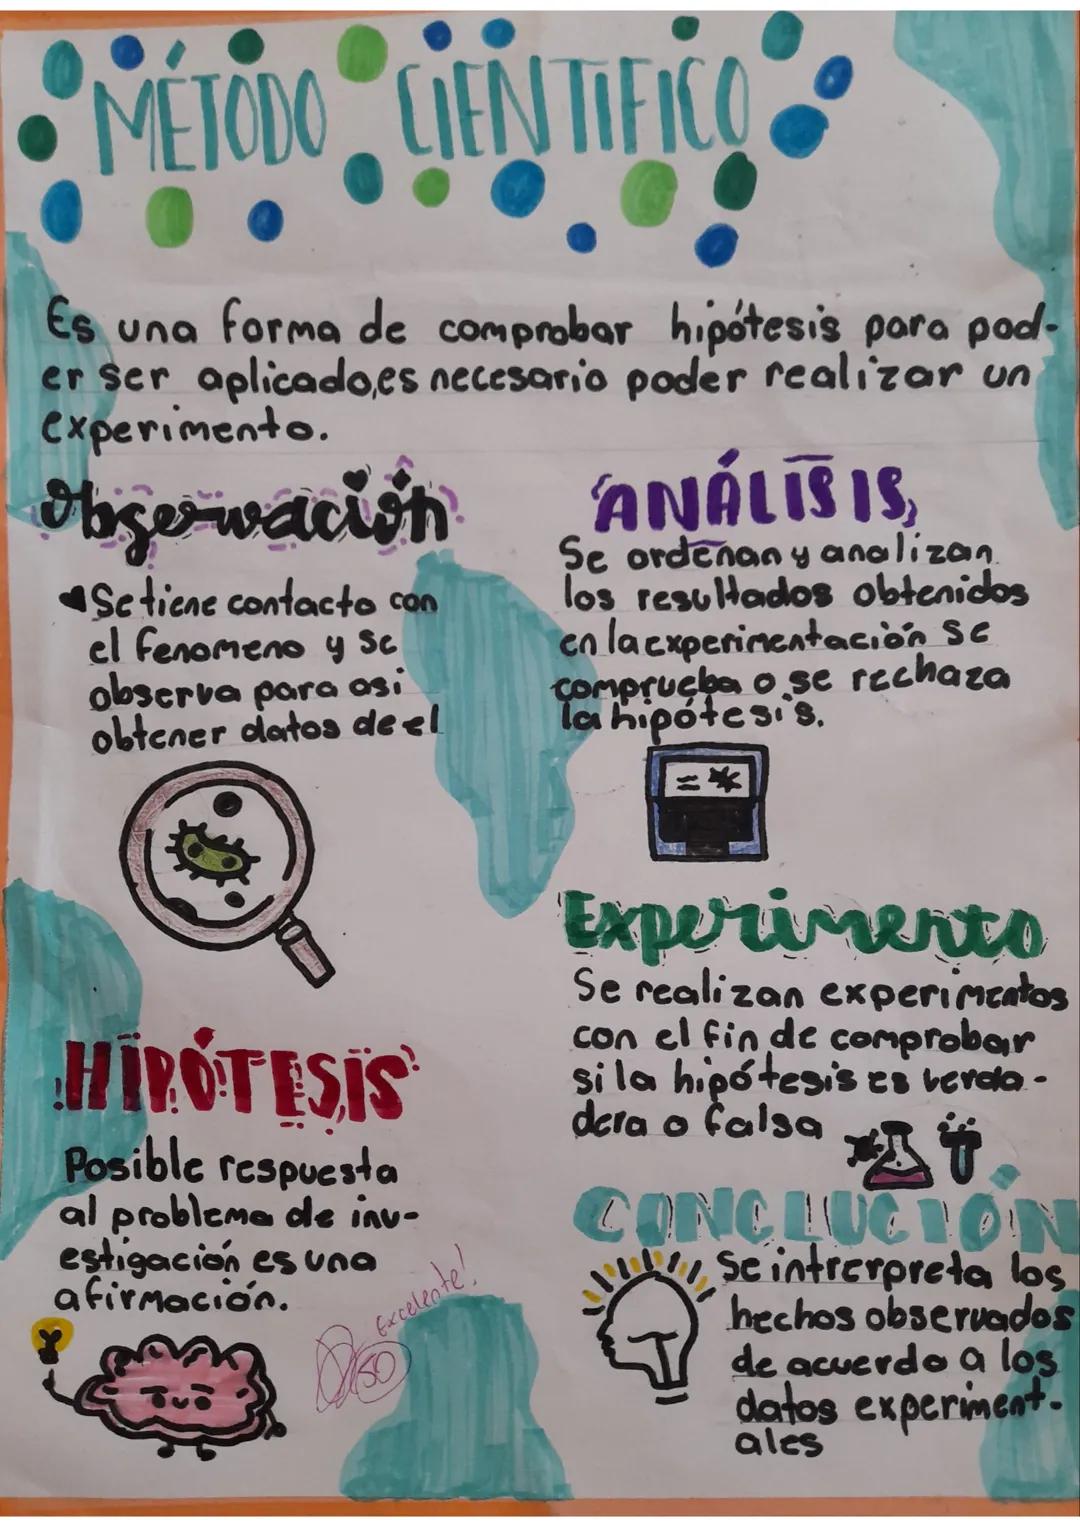 MÉTODO CIENTIFICO
Es una forma de comprobar hipótesis para pod-
er ser aplicado,es necesario poder realizar un
experimento.
Observación
Se tiene contacto con
el fenomeno y se
observa para asi
obtener datos de el
HIPÓTESIS
Posible respuesta
al problema de inv-
estigación es una
afirmación.
Excelente!
ANÁLISIS
Se ordenan y analizan
los resultados obtenidos
en la experimentación se
comprueba o se rechaza
la hipótesis.
Experimento
Se realizan experimentos
con el fin de comprobar
si la hipótesis es verda-
dera o falsa
CONCLUCIÓN
Se intrerpreta los
hechos observados
de acuerdo a los
datos experiment-
ales